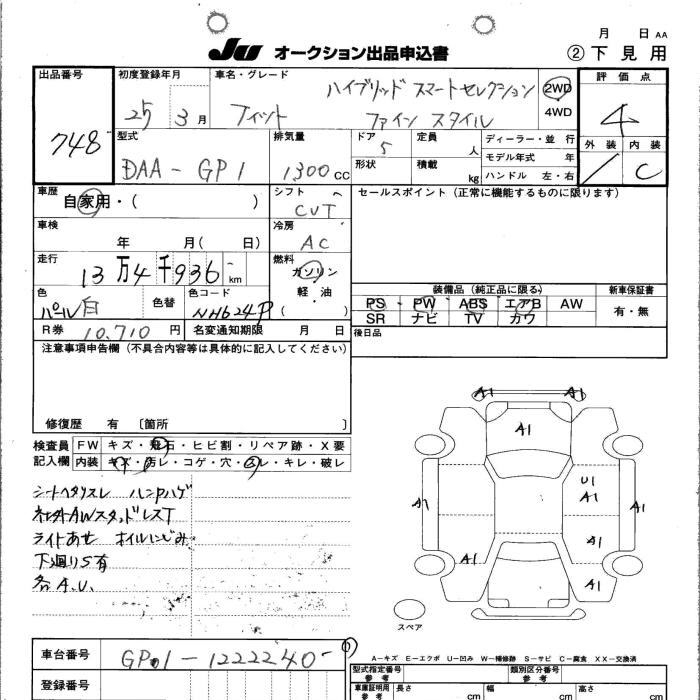 月 日 AA
JU オークション出品申込書
② 下見用
出品番号
748
初度登録年月
25 3月
車名・グレード
フィット ハイブリッド スマートセレクション
ファインスタイル
2WD
4WD
評価点
4
外装 内装
C
型式
DAA-GP1
排気量
1300cc
ドア
5
形状
定員
人
積載
kg
ディーラー・並行
モデル年式 年
ハンドル 左・右
車歴
自家用・( )
シフト
CVT
セールスポイント(正常に機能するものに限ります)
車検
年 月( 日)
冷房
AC
走行
13万4千936km
燃料
ガソリン
軽・油
( )
色
パール白
色替
色コード
NH624P
R券 10,710円
名変通知期限 月 日
装備品(純正品に限る)
PS PW ABS エアB AW
SR ナビ TV カワ
新車保証書
有・無
後日品
注意事項申告欄(不具合内容等は具体的に記入してください)
修復歴 有 〔箇所 〕
検査員
記入欄
FW キズ・飛石・ヒビ割・リペア跡・X要
内装 キズ・汚レ・コゲ・穴・スレ・キレ・破レ
シートヘタリスレ ハンドルハゲ
社外AWスタッドレスT
ライトあせ ホイルにじみ
下廻りS有
各A.U.
A1 A1
A1
A1
U1
A1
A1
A1
A1
A1
スペア
A-キズ E-エクボ U-凹み W-補修跡 S-サビ C-腐食 XX-交換済
車台番号
GP1-1222240
登録番号
型式指定番号
参考
類別区分番号
参考
車庫証明用
参考
長さ cm
幅 cm
高さ cm